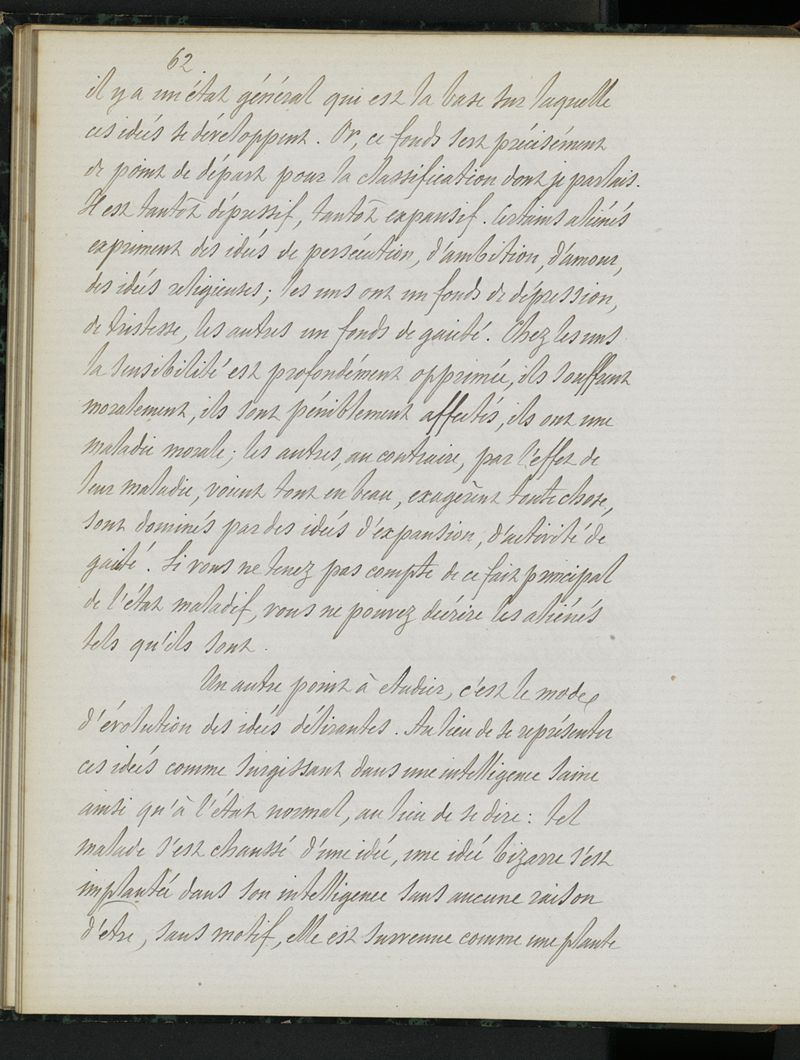 62
il y a un état général qui est la base sur laquelle
ces idées se développent. Or, ce fonds sert précisément
de point de départ pour la classification dont je parlais.
Il est tantôt dépressif, tantôt expansif. Certains aliénés
expriment des idées de persécution, d'ambition, d'amour,
des idées religieuses; les uns ont un fonds de dépression,
de tristesse, les autres un fonds de gaieté. Chez les uns
la sensibilité est profondément opprimée, ils souffrent
moralement, ils sont péniblement affectés, ils ont une
maladie morale; les autres, au contraire, par l'effet de
leur maladie, voient tout en beau, exagèrent toute chose,
sont dominés par des idées d'expansion, d'activité de
gaité. Si vous ne tenez pas compte de ce fait principal
de l'état maladif, vous ne pouvez décrire les aliénés
tels qu'ils sont.
Un autre point à étudier, c'est le mode
d'évolution des idées délirantes. Au lieu de se représenter
ces idées comme surgissant dans une intelligence saine
ainsi qu'à l'état normal, au lieu de se dire: tel
malade s'est chaussé d'une idée, une idée bizarre s'est
implantée dans son intelligence sans aucune raison
d'être, sans motif, elle est survenue comme une plante